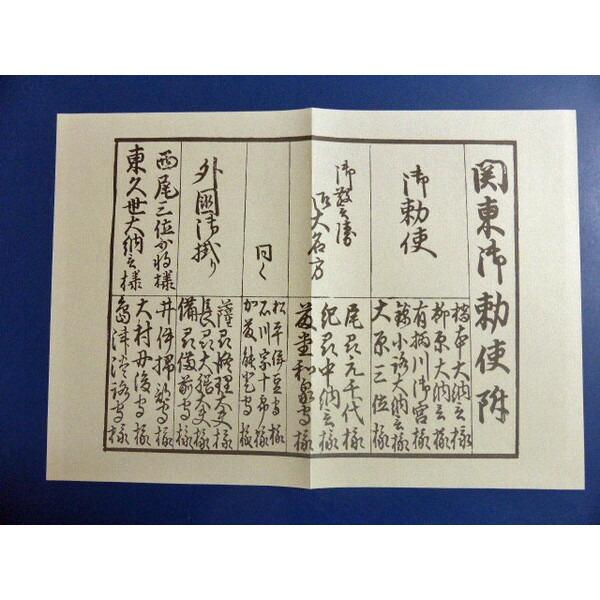 関東御勅使附
御勅使
橋本大納言様
柳原大納言様
有栖川御宮様
錦小路大納言様
大原三位様
御警衛
御大名方
尾州元千代様
紀州中納言様
藤堂和泉守様
同く
松平伊豆守様
石川宗十郎様
加藤能登守様
外国御掛り
薩州修理大夫様
長州大膳大夫様
備州備前守様
西尾三位少将様
東久世大納言様
井伊掃部守様
大村丹後守様
島津淡路守様